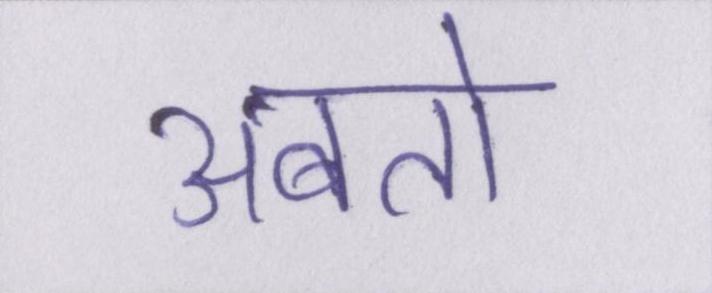 अबतो